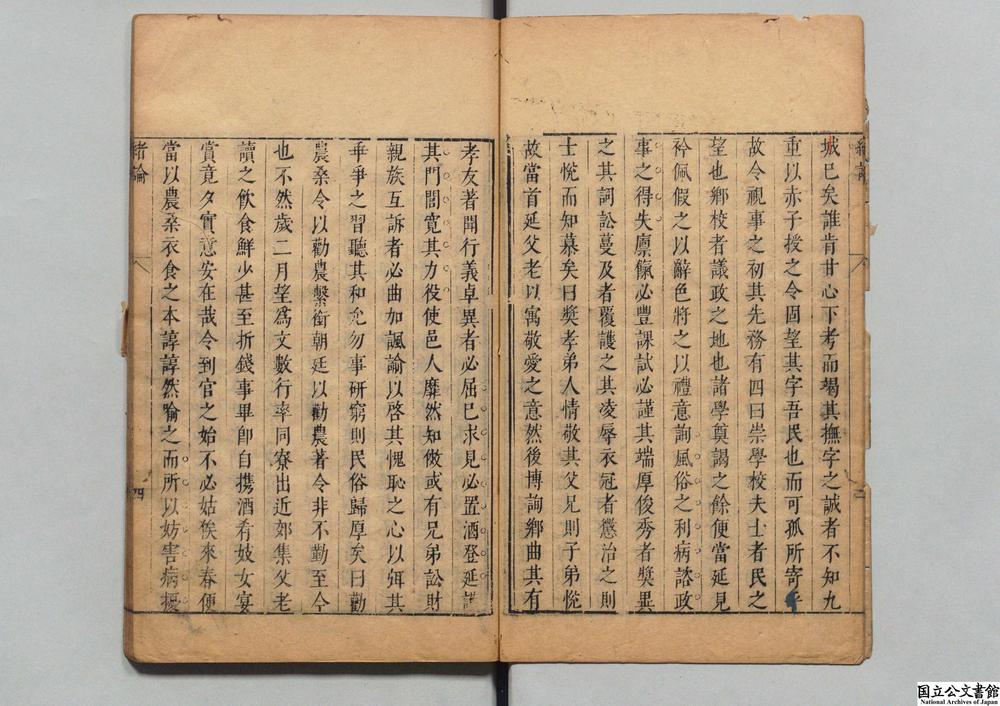 緒論
城已矣誰肯甘心下考而竭其撫字之誠者不知九
重以赤子授之令固望其字吾民也而可孤所寄乎
故令視事之初其先務有四曰崇學校夫士者民之
望也鄉校者議政之地也諸學奠謁之餘便當延見
衿佩假之以辭色將之以禮意詢風俗之利病諮政
事之得失廩餼必豐課試必謹其端厚俊秀者獎異
之其詞訟蔓及者覆護之其凌辱衣冠者懲治之則
士悅而知慕矣曰獎孝弟人情敬其父兄則子弟悅
故當首延父老以寓敬愛之意然後博詢鄉曲其有
孝友著聞行義卓異者必屈已求見必置酒登延護
其門閭寬其力役使邑人靡然知倣或有兄弟訟財
親族互訴者必曲加諷諭以啓其愧恥之心以弭其
乖爭之習聽其和允勿事研窮則民俗歸厚矣曰勸
農桑令以勸農繫銜朝廷以勸農著令非不勤至今
也不然歲二月望爲文數行率同寮出近郊集父老
讀之飲食鮮少甚至折錢事畢卽自携酒肴妓女宴
賞竟夕實意安在哉令到官之始不必姑俟來春便
當以農桑衣食之本諄諄然喻之而所以妨害病擾
緒論
四
国立公文書館
National Archives of Japan